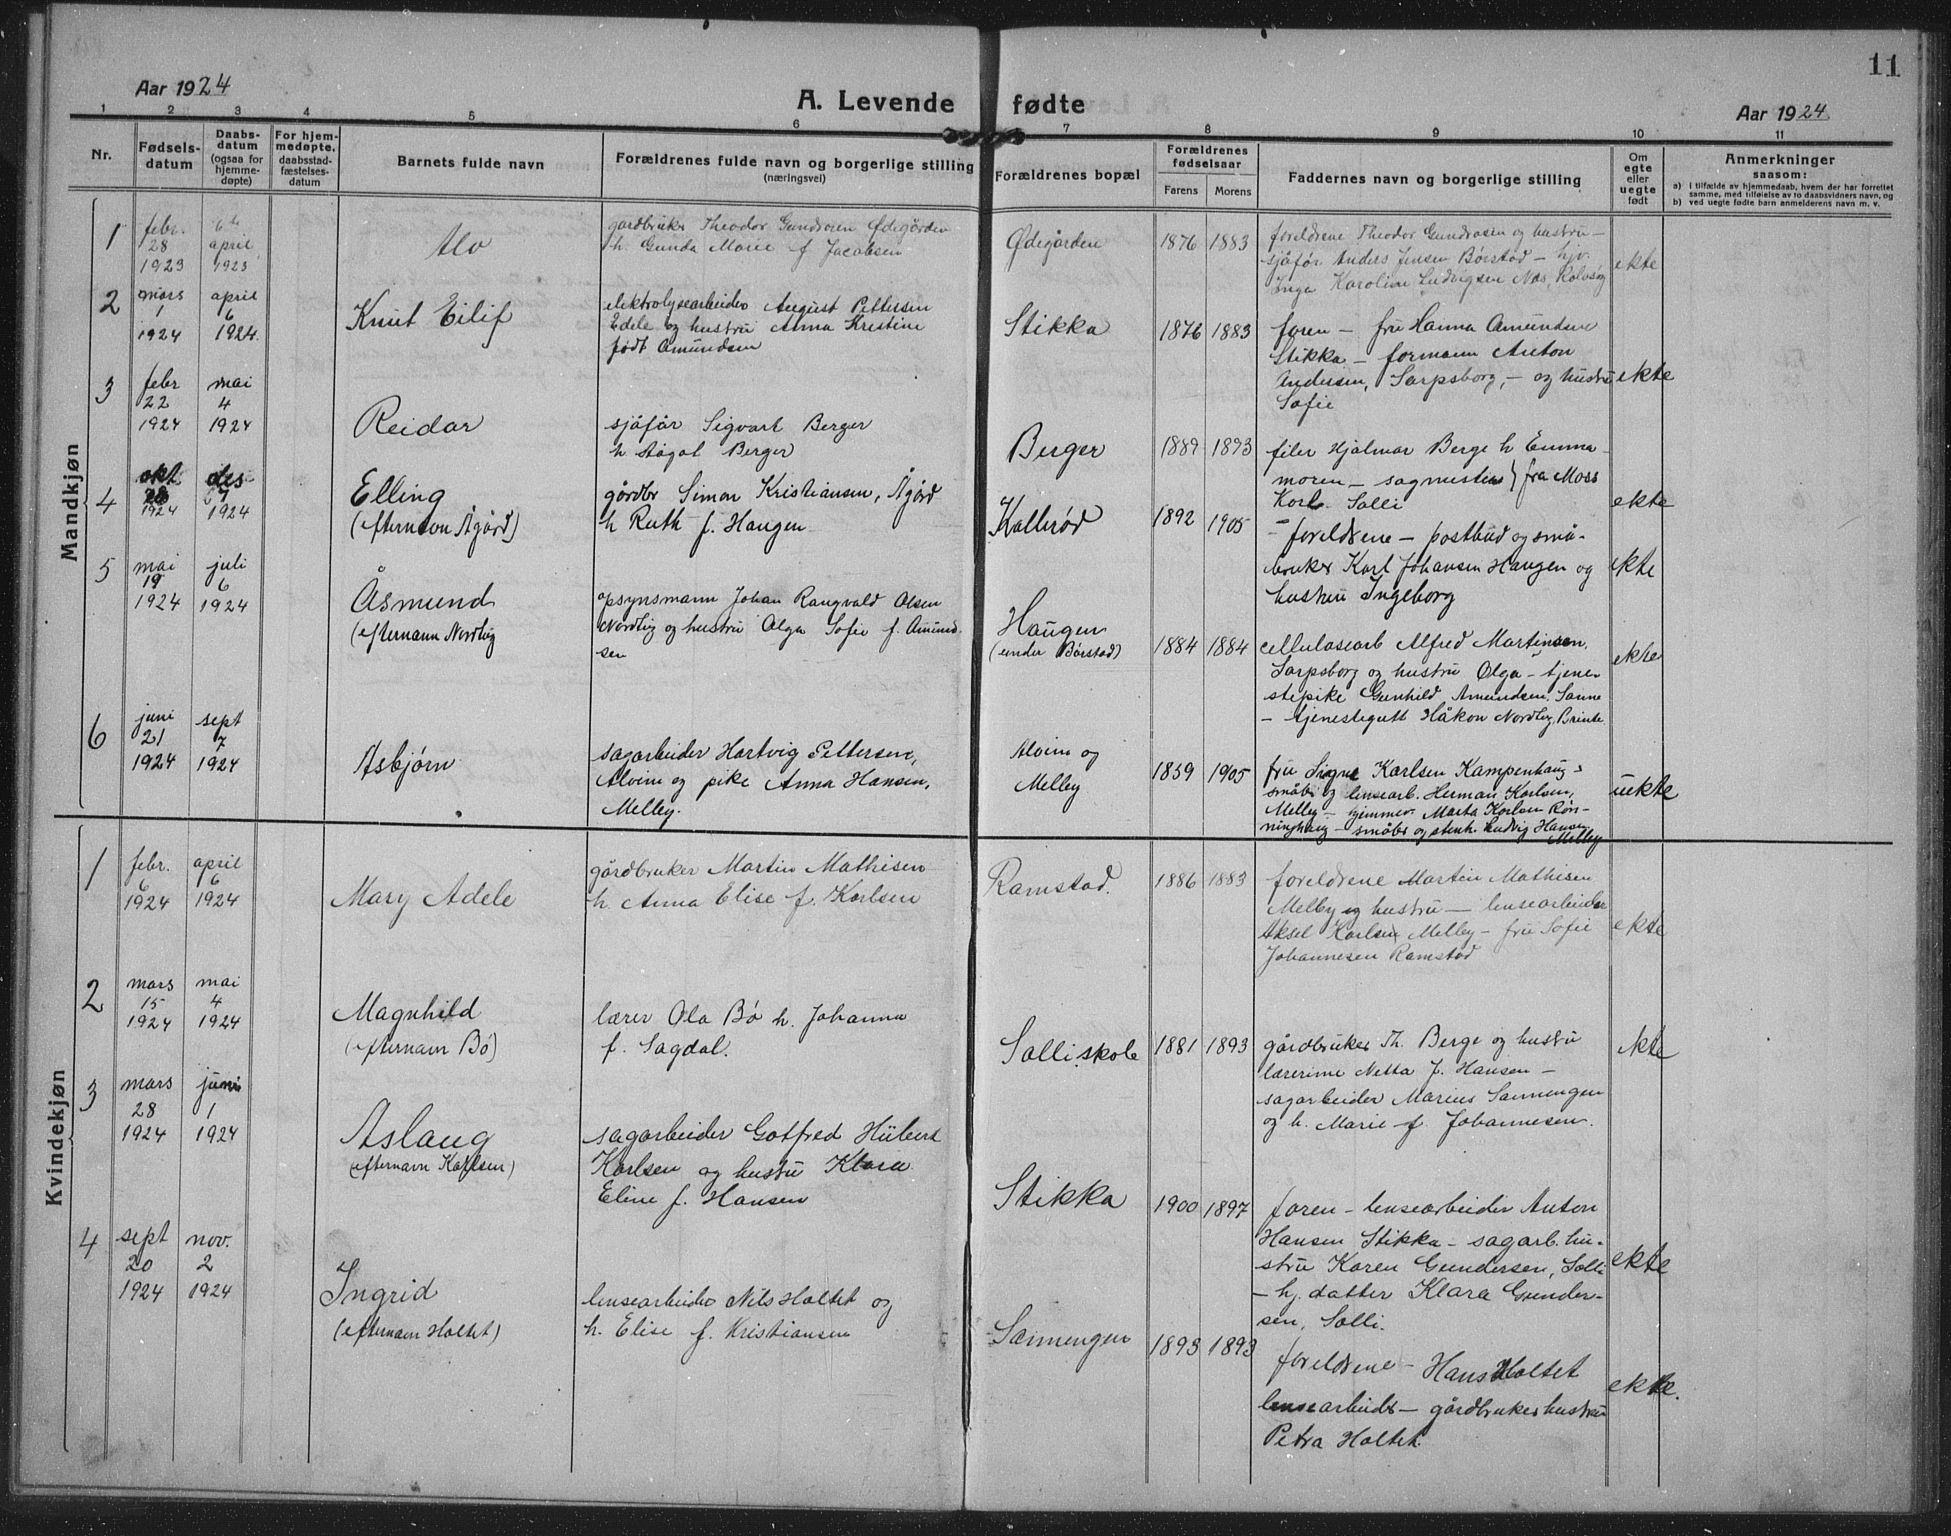 11
Aar 1924
A. Levende fødte
Aar 1924
1 2 3 4 5 6 7 8 9 10 11
Nr.
Fødsels-
datum
Daabs-
datum
(ogsaa for
hjemme-
døpte)
For hjem-
medøpte,
daabsstad-
fæstelses-
datum
Barnets fulde navn
Forældrenes fulde navn og borgerlige stilling
(næringsvei)
Forældrenes bopæl
Forældrenes
fødselsaar
Farens Morens
Faddernes navn og borgerlige stilling
Om
egte
eller
uegte
født
Anmerkninger
saasom:
a) i tilfælde av hjemmedaab, hvem der har forrettet
samme, med tilføielse av to daabsvidners navn, og
b) ved uegte fødte barn anmelderens navn m. v.
Mandkjøn
1
febr.
28
1923
6te
april
1923
Alo
gårdbruker Theodor Gundersen Ødegården
h. Gunda Marie f Jacobsen
Ødegården
1876 1883
foreldrene Theodor Gundersen og hustru –
sjåfør Anders Jensen Børstad – hjv.
Inga Karoline Ludvigsen Næs, Rolvsøy
ekte
2
mars
1
1924
april
6
1924.
Knut Eilif
elektrolysearbeider August Pettersen
Edele og hustru Anna Kristine
født Amundsen
Stikka
1876 1883
faren – fru Hanna Amundsen
Stikka – formann Anton
Andersen, Sarpsborg, – og hustru
Sofie
ekte
3
febr
22
1924
mai
4
1924
Reidar
sjåfør Sigvart Berger
h Ågot Berger
Berger
1889 1893
filer Hjalmar Berge h Emma –
moren – sagmester } fra Moss
Karl. Solli
ekte
4
okt
28
1924
des
7
1924
Elling
(efternavn Ågård)
gårdbr Simon Kristiansen, Ågård
h Ruth f. Haugen
Kallerød
1892 1905
– foreldrene – postbud og små-
bruker Karl Johansen Haugen og
hustru Ingeborg
ekte
5
mai
19
1924
juli
6
1924
Åsmund
(efternavn Nordlig
opsynsmann Johan Rangvald Olsen
Nordlig og hustru Olga Sofie f. Amund-
sen
Haugen
(under Børstad)
1884 1884
cellulosearb Alfred Martinsen,
Sarpsborg og hustru Olga – tjene-
stepike Gunhild Amundsen, Sanne
– tjenestegutt Håkon Nordlig, Brinte
ekte
6
juni
21
1924
sept
7
1924
Asbjørn
sagarbeider Hartvig Pettersen,
Alvim og pike Anna Hansen,
Melleby.
Alvim og
Melleby
1859 1905
fru Signe Karlsen Kampenhaug –
småbr og lensearb. Herman Karlsen,
Melleby – hjemmev. Marta Karlsen Røn-
ninghaug – småbr og stenh. Ludvig Hansen
Melleby
uekte
Kvindekjøn
1
febr.
6
1924
april
6
1924
Mary Adele
gårdbruker Martin Mathisen
h Anna Elise f. Karlsen
Ramstad.
1886 1883
foreldrene Martin Mathisen
Melby og hustru – lensearbeider
Aksel Karlsen Melleby – fru Sofie
Johannesen Ramstad
ekte
2
mars
15
1924
mai
4
1924
Magnhild
(efternavn Bø)
lærer Ola Bø h. Johanna
f. Sagdal.
Solli skole
1881 1893
gårdbruker Th. Berge og hustru
lærerinne Netta f. Hansen –
sagarbeider Marius Sannengen
og h. Marie f. Johannesen.
ekte
3
mars
28
1924
juni
1
1924
Aslaug
(efternavn Karlsen)
sagarbeider Gotfred Hübert
Karlsen og hustru Klara
Eline f. Hansen
Stikka
1900 1897
faren – lensearbeider Anton
Hansen Stikka – sagarb. hu-
stru Karen Gundersen, Solli
– hj. datter Klara Gunder-
sen, Solli.
ekte
4
sept
20
1924
nov.
2
1924
Ingrid
(efternavn Holtet)
lensearbeider Nils Holtet og
h. Elise f. Kristiansen
Sannengen
1893 1893
foreldrene – Hans Holtet
lensearbeider – gårdbruker hustru
Petra Holtet
ekte.